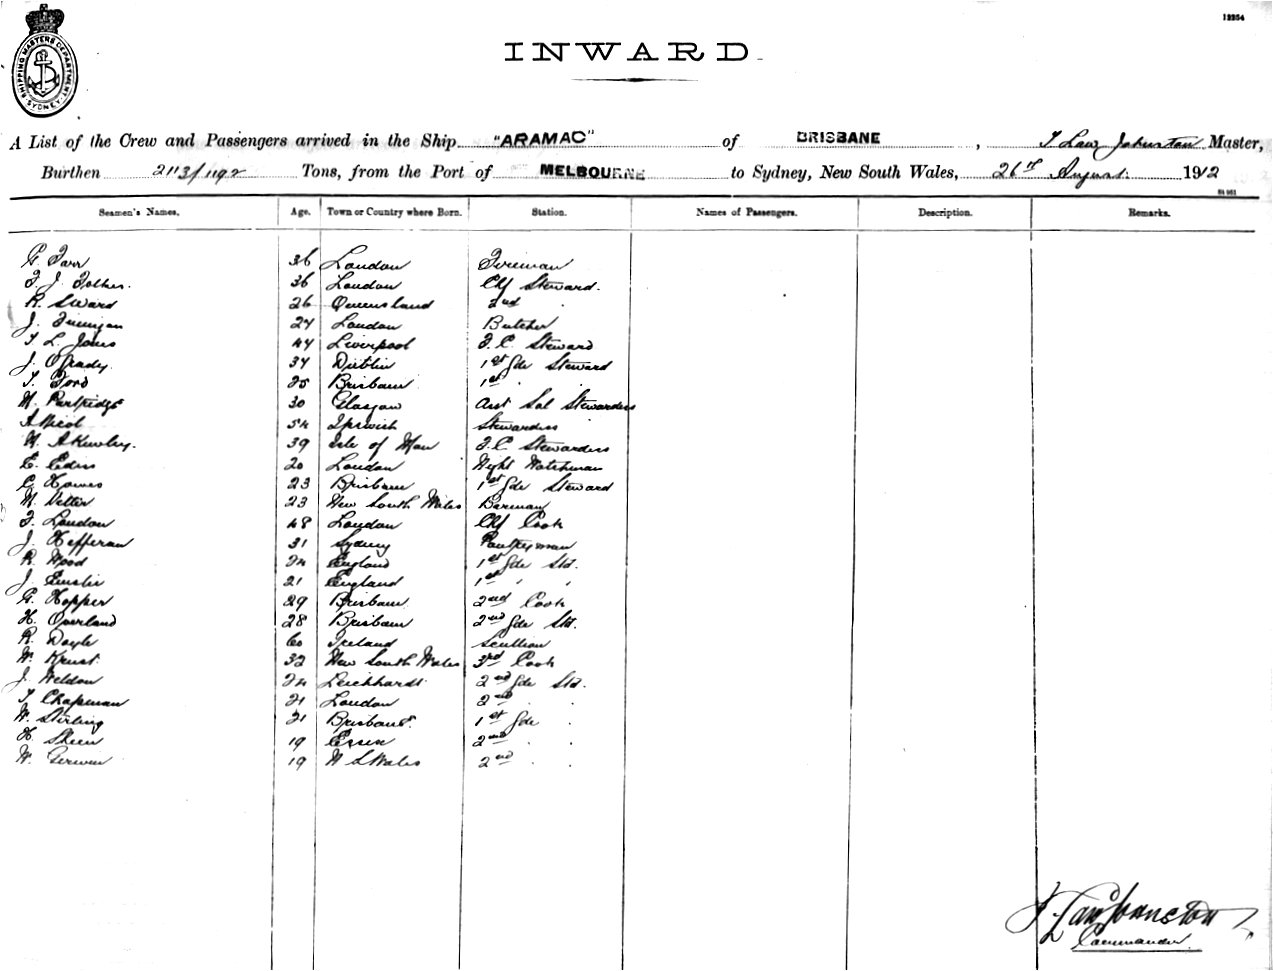 12254
SHIPPING MASTERS DEPARTMENT SYDNEY
INWARD.
A List of the Crew and Passengers arrived in the Ship "ARAMAC" of BRISBANE, T Law Johnston Master,
Burthen 2113/1192 Tons, from the Port of MELBOURNE to Sydney, New South Wales, 26th August 1912
Seamen's Names. Age. Town or Country where Born. Station. Names of Passengers. Description. Remarks.
G. Farr 36 London Fireman
F. J. 36 London Chf Steward.
R. Sward 26 Queensland 2nd "
J. Finnigan 24 London Butcher
T L. Jones 44 Liverpool F. C. Steward
J. O'Grady 34 Dublin 1st Gde Steward
T. Ford 25 Brisbane 1st " "
M. Partridge 30 Glasgow Asst Sal Stewardess
A Nicol 54 Ipswich Stewardess
M. A Kewley. 39 Isle of Man F. C Stewardess
E. Edis 20 London Night Watchman
C. Howes 23 Brisbane 1st Gde Steward
M. Vetter 23 New South Wales Barman
F. London 48 London Chf Cook
J. Hefferan 31 Sydney Pantryman
R. Wood 24 England 1st Gde Std.
J. 21 England 1st " "
G. Hopper 29 Brisbane 2nd Cook
H. Overland 28 Brisbane 2nd Gde Std.
R. Doyle 60 Ireland Scullion
W. Krust 32 New South Wales 3rd Cook
J. Weldon 24 Leichhardt 2nd Gde Std.
T. Chapman 21 London 2nd " "
W. Stirling 21 Brisbane 1st Gde "
H. Skeen 19 Essex 2nd " "
W. 19 N S Wales 2nd " "
T Law Johnston
Commander.